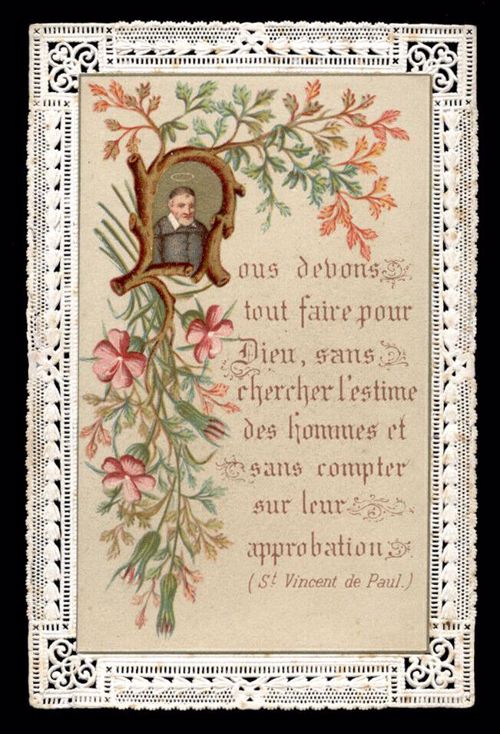 Nous devons
tout faire pour
Dieu, sans
chercher l'estime
des hommes et
sans compter
sur leur
approbation
(St Vincent de Paul.)